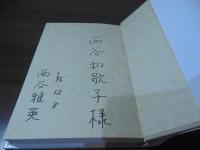 西谷和歌子様
12 8
西谷雅英